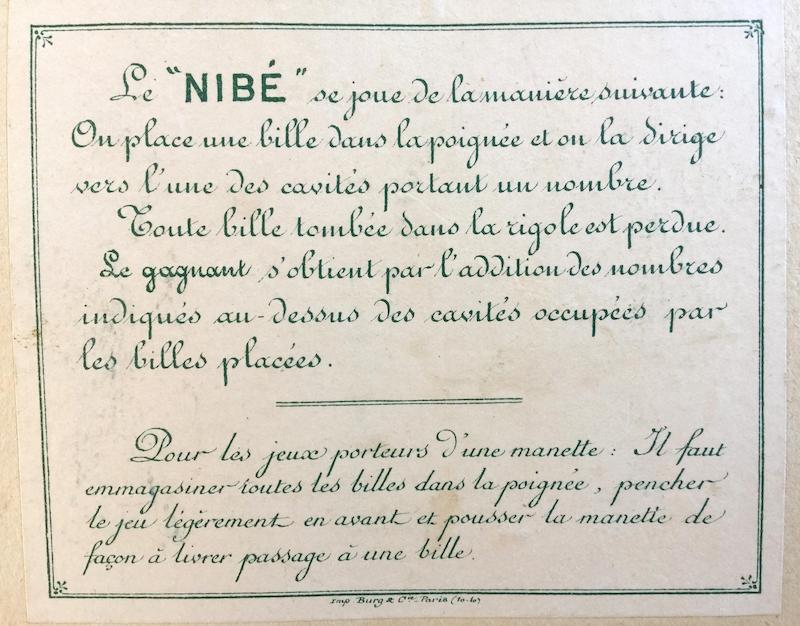 Le "NIBÉ" se joue de la manière suivante:
On place une bille dans la poignée et on la dirige
vers l'une des cavités portant un nombre.
Toute bille tombée dans la rigole est perdue.
Le gagnant s'obtient par l'addition des nombres
indiqués au-dessus des cavités occupées par
les billes placées.
Pour les jeux porteurs d'une manette: Il faut
emmagasiner toutes les billes dans la poignée, pencher
le jeu légèrement en avant et pousser la manette de
façon à livrer passage à une bille.
Imp. Burg & Cie Paris (10-6)